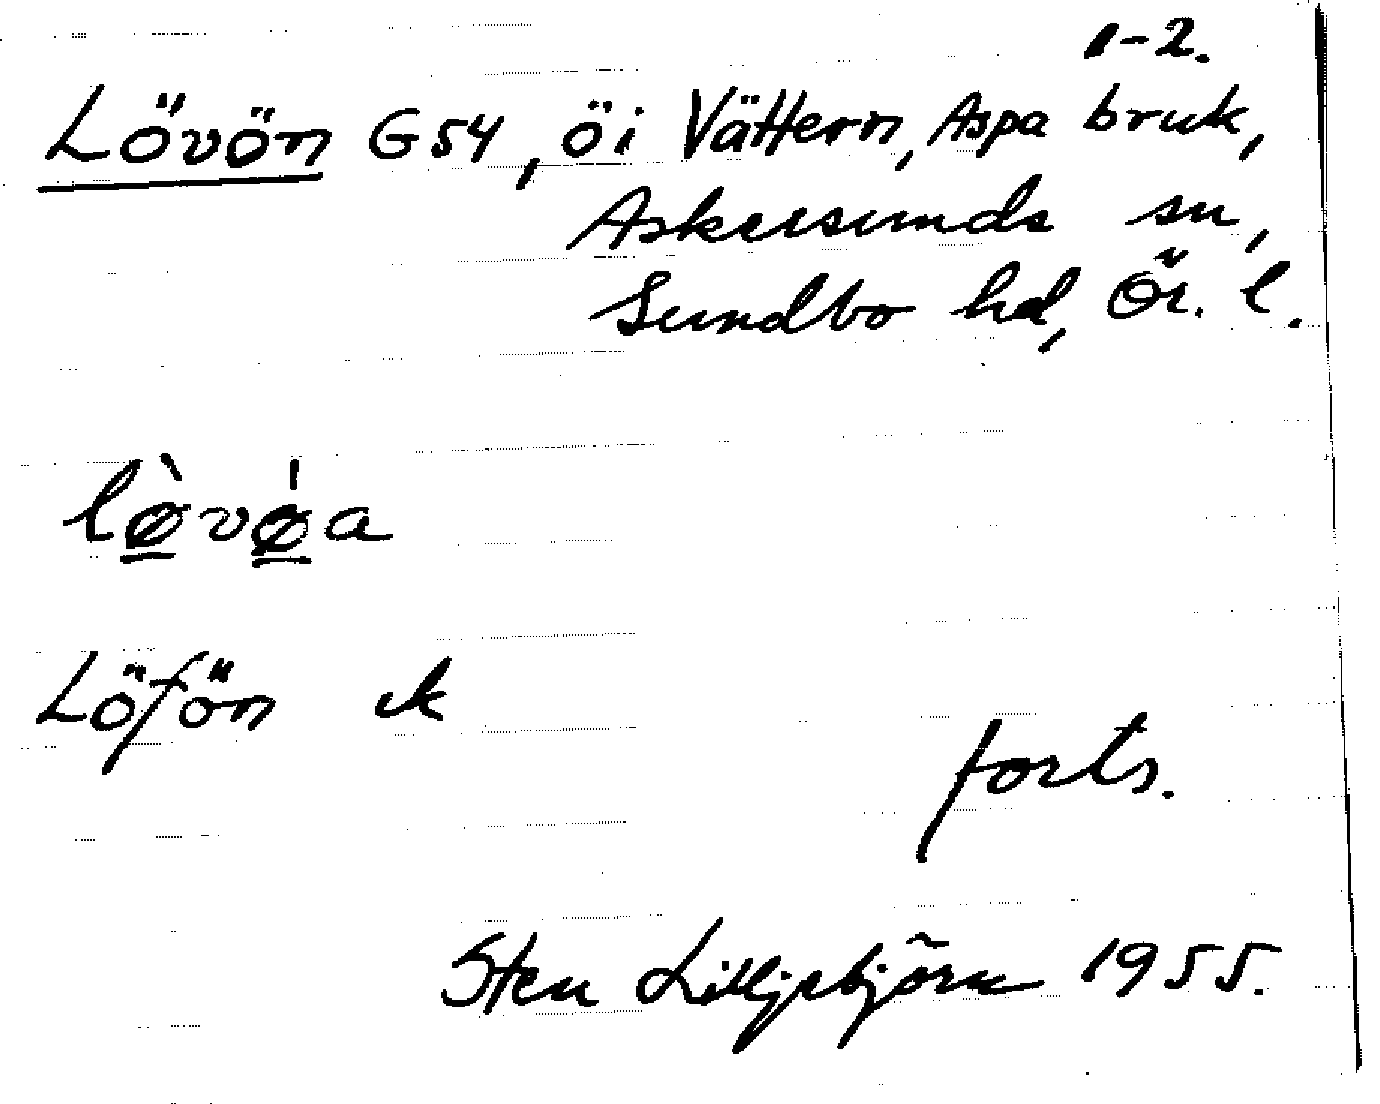 1-2.
Lövön G54, ö i Vättern, Aspa bruk,
Askersunds sn,
Sundbo hd, Ör. l.
lø̀vǿa
Löfön ek
forts.
Sten Lilljebjörn 1955.